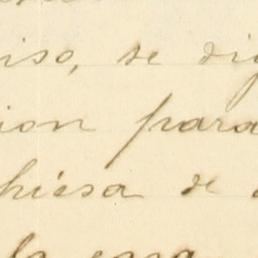 iso, se dig
ion para
hiesa de
la casa